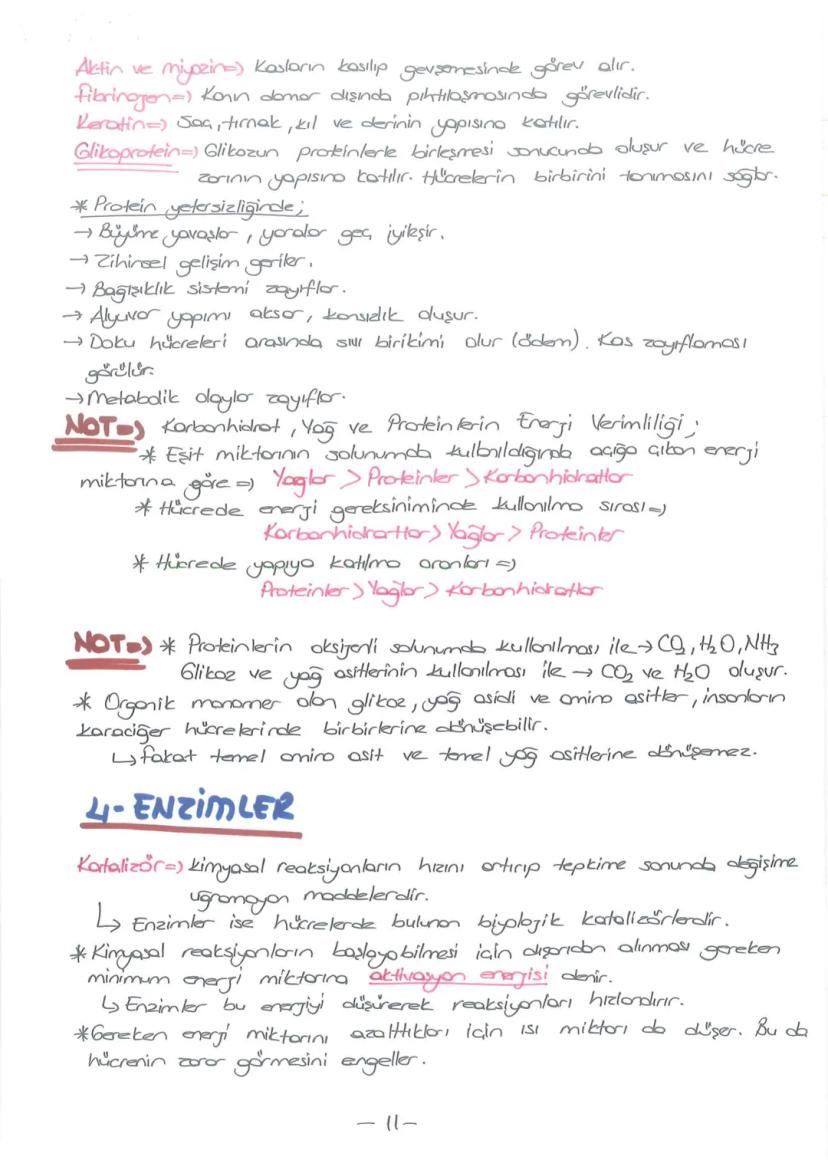 Aktin ve miyozin=> Kasların kasılıp gevşemesinde görev alır.
Fibrinojen=> Kanın damar dışında pıhtılaşmasında görevlidir.
Keratin=> Saç, tırnak, kıl ve derinin yapısına katılır.
Glikoprotein=> Glikozun proteinlerle birleşmesi sonucunda oluşur ve hücre
zarının yapısına katılır. Hücrelerin birbirini tanımasını sağlar.
* Protein yetersizliğinde;
→ Büyüme yavaşlar, yaralar geç iyileşir.
→ Zihinsel gelişim geriler.
→ Bağışıklık sistemi zayıflar.
→ Alyuvar yapımı aksar, kansızlık oluşur.
→ Doku hücreleri arasında sıvı birikimi olur (ödem). Kas zayıflaması
görülür.
→ Metabolik olaylar zayıflar.
NOT=> Karbonhidrat, Yağ ve Proteinlerin Enerji Verimliliği;
* Eşit miktarının solunumda kullanıldığında açığa çıkan enerji
miktarına göre => Yağlar > Proteinler > Karbonhidratlar
* Hücrede enerji gereksiniminde kullanılma sırası=>
Karbonhidratlar > Yağlar > Proteinler
* Hücrede yapıya katılma oranları =>
Proteinler > Yağlar > Karbonhidratlar
NOT=> * Proteinlerin oksijenli solunumda kullanılması ile → CO₂, H₂O, NH₃
Glikoz ve yağ asitlerinin kullanılması ile → CO₂ ve H₂O oluşur.
* Organik monomer olan glikoz, yağ asidi ve amino asitler, insanların
karaciğer hücrelerinde birbirlerine dönüşebilir.
↳ fakat temel amino asit ve temel yağ asitlerine dönüşemez.
4- ENZİMLER
Katalizör=> kimyasal reaksiyonların hızını artırıp tepkime sonunda değişime
uğramayan maddelerdir.
↳ Enzimler ise hücrelerde bulunan biyolojik katalizörlerdir.
* Kimyasal reaksiyonların başlayabilmesi için dışarıdan alınması gereken
minimum enerji miktarına aktivasyon enerjisi denir.
↳ Enzimler bu enerjiyi düşürerek reaksiyonları hızlandırır.
* Gereken enerji miktarını azalttıkları için ısı miktarı da düşer. Bu da
hücrenin zarar görmesini engeller.
- 11 -